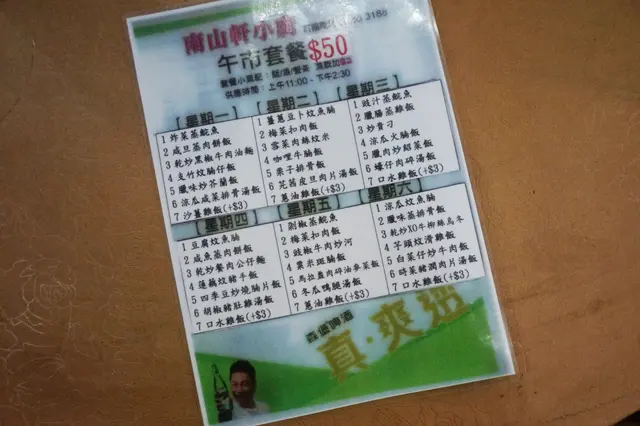 南山軒小廚
3188
午市套餐$50
供應時間：上午11:00 - 下午2:30
【星期一】
1 炸菜蒸鯇魚
2 咸旦蒸肉餅飯
3 乾炒黑椒牛肉油麵
4 支竹炆腩仔飯
5 臘味炒芥蘭飯
6 涼瓜咸菜排骨湯飯
7 沙薑雞飯(+$3)
【星期二】
1 薑蔥豆卜炆魚腩
2 梅菜扣肉飯
3 雪菜肉絲炆米
4 咖喱牛腩飯
5 栗子排骨飯
6 芫茜皮旦肉片湯飯
7 蔥油雞飯(+$3)
【星期三】
1 豉汁蒸魚
2 臘腸蒸雞飯
3 炒貴刁
4 涼瓜火腩飯
5 臘肉炒韶菜飯
6 蠔仔肉碎湯飯
7 口水雞飯(+$3)
【星期四】
1 豆腐炆魚腩
2 咸魚蒸肉餅飯
3 乾炒餐肉公仔麵
4 蓮藕炆豬手飯
5 四季豆炒燒腩片飯
6 胡椒豬肚雞湯飯
7 口水雞飯(+$3)
【星期五】
1 剁椒蒸鯇魚
2 梅菜扣肉飯
3 豉椒牛肉炒河
4 粟米斑腩飯
5 馬拉盞肉碎油麥菜飯
6 冬瓜鴨腿湯飯
7 蔥油雞飯(+$3)
【星期六】
1 涼瓜炆魚
2 臘味蒸排骨飯
3 乾炒XO牛柳絲烏冬
4 芋頭炆滑雞飯
5 白菜仔炒牛肉飯
6 時菜豬潤肉片湯飯
7 口水雞飯(+$3)
森堡啤酒
真·爽